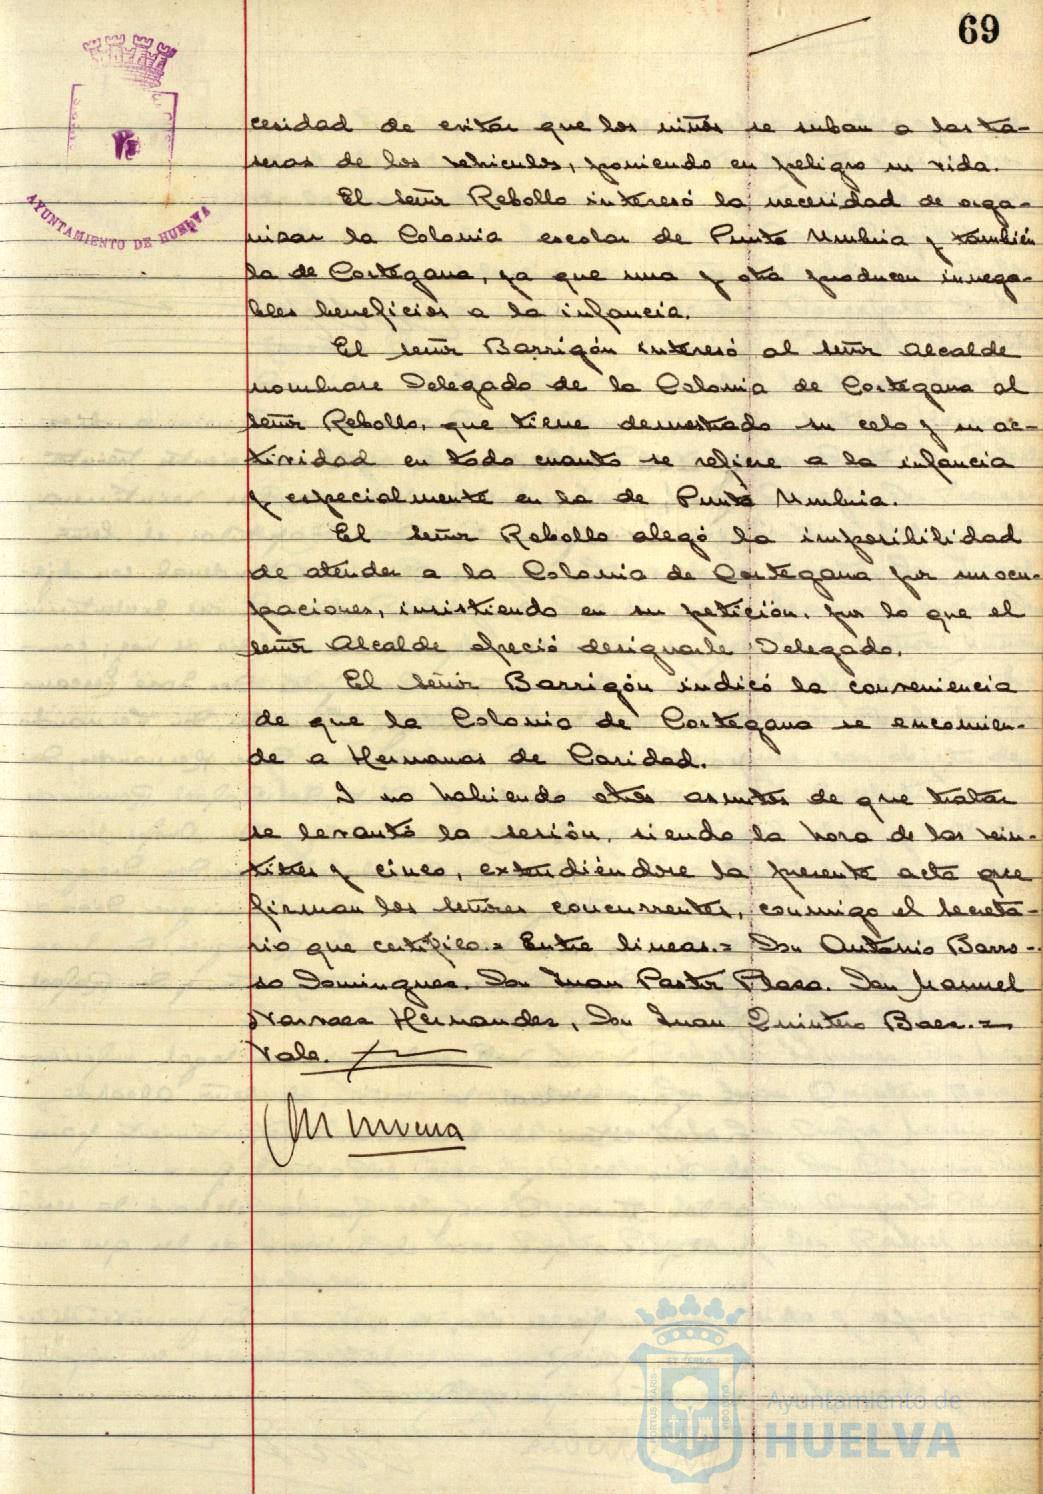 69
AYUNTAMIENTO DE HUELVA
cesidad de evitar que los niños se suban a las tra-
seras de los vehiculos, poniendo en peligro su vida.
El señor Rebollo interesó la necesidad de orga-
nizar la Colonia escolar de Punta Umbria y también
la de Cortegana, ya que una y otra producen innega-
bles beneficios a la infancia.
El señor Barrigón interesó al señor Alcalde
nombrase Delegado de la Colonia de Cortegana al
señor Rebollo, que tiene demostrado su celo y su ac-
tividad en todo cuanto se refiere a la infancia
y especialmente en la de Punta Umbria.
El señor Rebollo alegó la imposibilidad
de atender a la Colonia de Cortegana por sus ocu-
paciones, insistiendo en su petición, por lo que el
señor Alcalde ofreció designarle Delegado.
El señor Barrigón indicó la conveniencia
de que la Colonia de Cortegana se encomien-
de a Hermanas de Caridad.
Y no habiendo otros asuntos de que tratar
se levantó la sesión, siendo la hora de las vein-
titres y cinco, extendiéndose la presente acta que
firman los señores concurrentes, conmigo el Secreta-
rio que certifico.= Entre lineas.= Don Antonio Barro-
so Dominguez. Don Juan Pastor Plaza. Don Manuel
Narvaez Hernandez, Don Juan Quintero Baez.=
Vale.
Ayuntamiento de
HUELVA